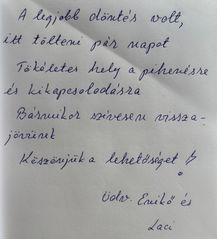 A legjobb döntés volt,
itt tölteni pár napot
Tökéletes hely a pihenésre
és kikapcsolodásra
Bármikor szivesen vissza-
jövünk
Köszönjük a lehetőséget!
Üdv. Enikő és
Laci